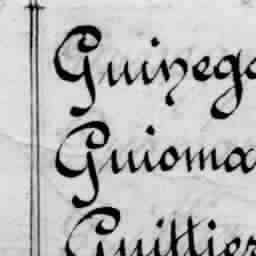 Guinego
Guiomar
Guittier